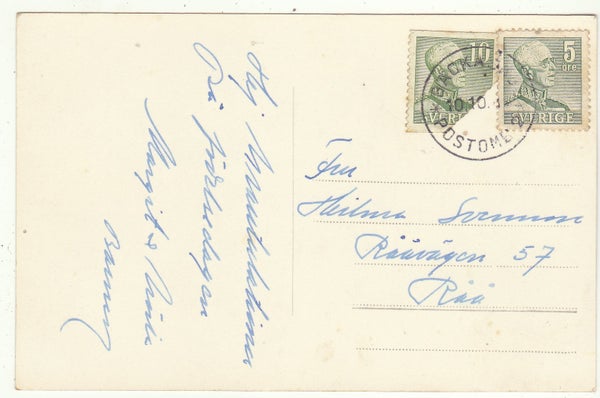 Hj. Gratulationer
På födelsedagen
Margit & Nisse
Barnen
10
SVERIGE
5
öre
SVERIGE
BACKA
10.10.
POSTOMB
Fru
Hilma Svensson
Rååvägen 57
Råå